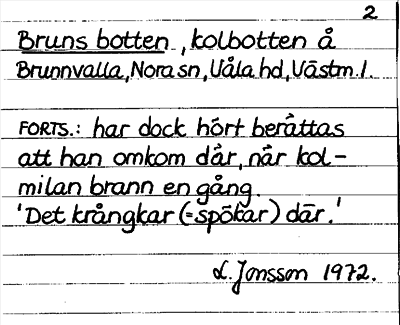 2
Bruns botten, kolbotten å
Brunnvalla, Nora sn, Våla hd, Västm. l.
FORTS.: har dock hört berättas
att han omkom där, när kol-
milan brann en gång.
'Det krångkar (=spökar) där.'
L. Jonsson 1972.